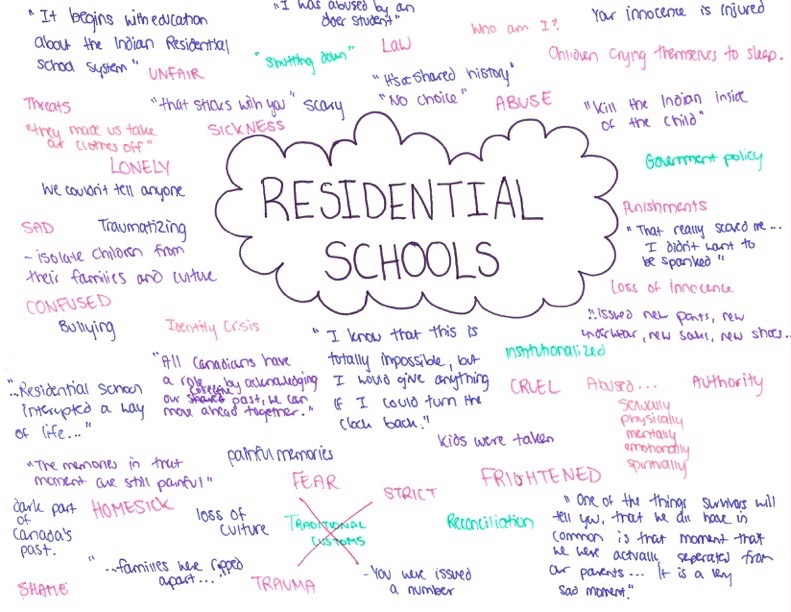 "I was abused by an
older student"
"It begins with education
about the Indian Residential
school system"
UNFAIR
"Shutting down"
LAW
Who am I?
Your innocence is injured
Children crying themselves to sleep.
"It's a shared history"
"No choice"
ABUSE
"Kill the Indian inside
of the child"
Threats
"that sticks with you"
scary
"they made us take
our clothes off"
SICKNESS
LONELY
We couldn't tell anyone
Government policy
RESIDENTIAL
SCHOOLS
Punishments
SAD
Traumatizing
"That really scared me...
I didn't want to
be spanked"
- isolate children from
their families and culture
Loss of innocence
CONFUSED
Bullying
Identity Crisis
"...issued new pants, new
underwear, new socks, new shoes..."
"I know that this is
totally impossible, but
I would give anything
if I could turn the
clock back."
institutionalized
"All Canadians have
a role... by acknowledging
our collective past, we can
move ahead together."
"...Residential school
interrupted a way
of life..."
CRUEL
Abused...
sexually
physically
mentally
emotionally
spiritually
Authority
Kids were taken
painful memories
"The memories in that
moment are still painful"
FEAR
STRICT
FRIGHTENED
dark part
of
Canada's
past.
HOMESICK
loss of
culture
TRADITIONAL
CUSTOMS
Reconciliation
"One of the things survivors will
tell you, that we all have in
common is that moment that
we were actually seperated from
our parents... It is a very
sad moment."
"...families were ripped
apart..."
SHAME
TRAUMA
- You were issued
a number